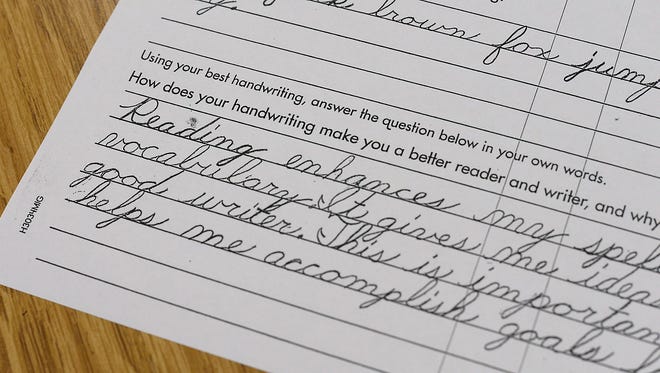 brown fox jump
Using your best handwriting, answer the question below in your own words.
How does your handwriting make you a better reader and writer, and why
Reading enhances my spel
vocabulary. It gives me ideas
good writer. This is importan
helps me accomplish goals
H3034MKG